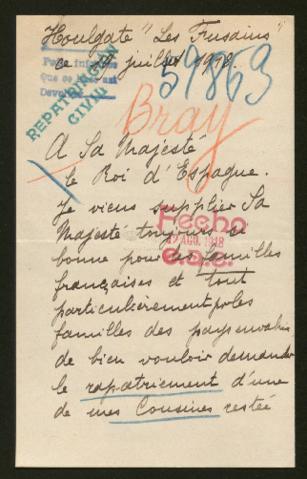 Houlgate "Les Fusains"
ce 19 juillet 1918
REPATRIACIÓN
CIVIL
59863
Bray
A Sa Majesté
le Roi d'Espagne.
Je viens supplier Sa
Fecho
AGO. 1918
Majesté toujours si
bonne pour les familles
françaises et tout
particulièrement pr les
familles des pays envahis
de bien vouloir demander
le rapatriement d'une
de mes Cousines restée